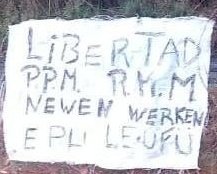 LiBERTAD
P.P.M. R.M.M
NEWEN WERKEN
EPU LEUFU